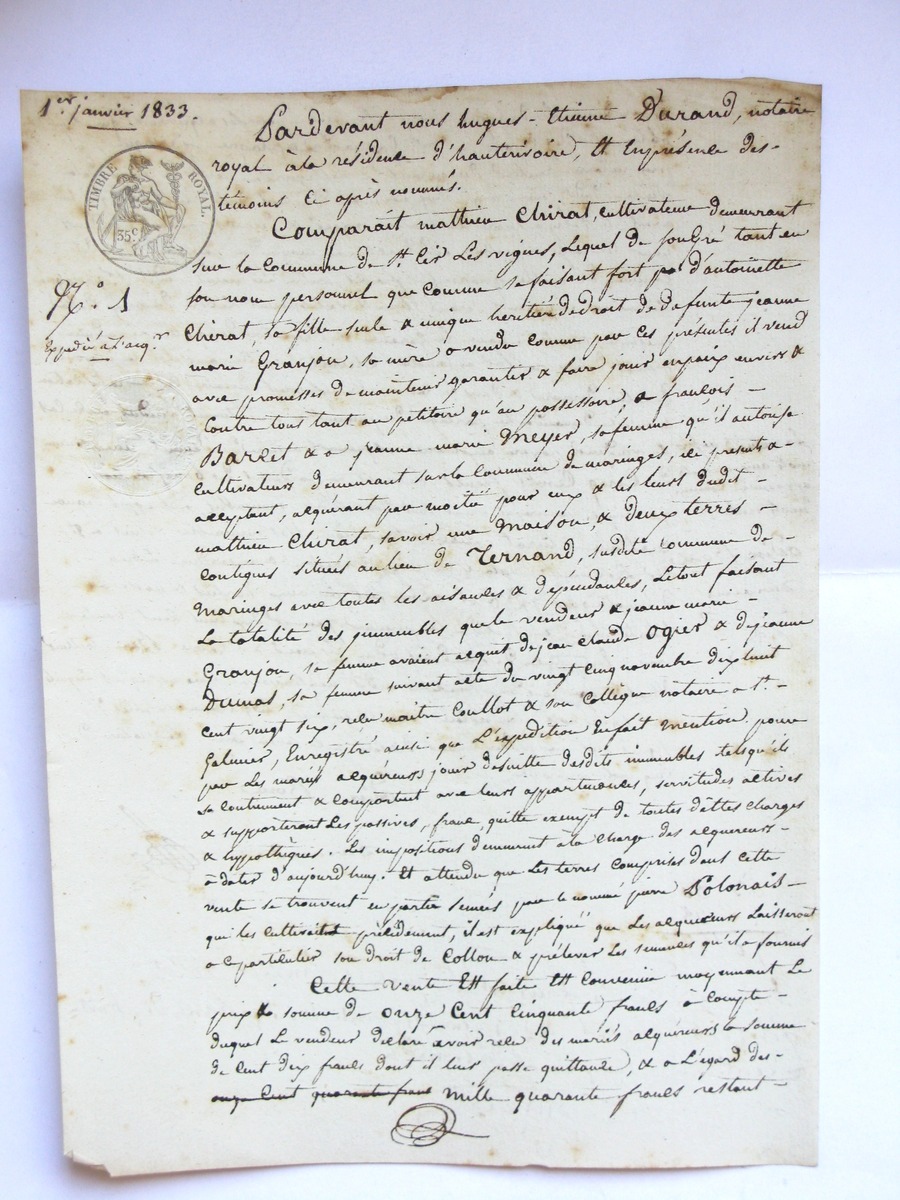 1er janvier 1833.
Pardevant nous hugues-Etienne Durand, notaire
royal à la résidence d'hauterivoire, Et En présence des-
témoins Ci après nommés.
TIMBRE ROYAL.
35c
Comparait mathieu Chirat, cultivateur demeurant
sur la Commune de St Cir Les vignes, Lequel de son Gré tant en
N.° 1
son nom personnel que Comme se faisant fort pr d'antoinette
Expédié à l'acqr
Chirat, sa fille seule & unique heritière de droit de defunte jeanne
marie Granjon, sa mère a vendu comme par Ces présentes il vend
avec promesses de maintenir garantir & faire jouir en paix envers &
Contre tous tant au petitoire qu'au possessoire, a françois -
Barlet & a jeanne marie Meyer, sa femme qu'il autorise
Cultivateurs demeurant sur la Commune de maringes, ici présents &
acceptant, acquérant par moitié pour eux & les leurs dudit -
mathieu Chirat, savoir une Maison, & deux terres -
Contigues situées au lieu de Ternand, susdite Commune de -
Maringes avec toutes les aisances & dépendances, Le tout faisant
La totalité des immeubles que le vendeur & jeanne marie -
Granjon, sa femme avaient acquit de jean Claude Ogier & de jeanne
Dumas, sa femme suivant acte du vingt cinq novembre dix huit
Cent vingt six, reçu maitre Coullot & son Collègue notaire a St -
Galmier, Enregistré ainsi que L'expedition En fait Mention. pour
par Les mariés acquéreurs jouir de suitte desdits immeubles tels qu'ils
se Contiennent & Comportent avec leurs appartenances, servitudes actives
& supporteront Les passives, franc, quitte exempt de toutes dettes charges
& hypothèques. Les impositions demeurent a la Charge des acquereurs -
à dater d'aujourd'huy. Et attendu que Les terres Comprises dans Cette
vente se trouvent en partie semées par le nommé pierre Polonais -
qui les Cultivait précédement, il est expliqué que Les acquereurs Laisseront
a ce particulier son droit de Collon & prélever Les semences qu'il a fournis
Cette vente Est faite Et Convenue moyennant Le
prix & somme de onze Cent Cinquante francs à Compte -
duquel Le vendeur declare avoir reçu des mariés acquéreurs la somme
de Cent dix francs dont il leur passe quittance, & a L'égard des -
onze Cent quarante francs Mille quarante francs restant -